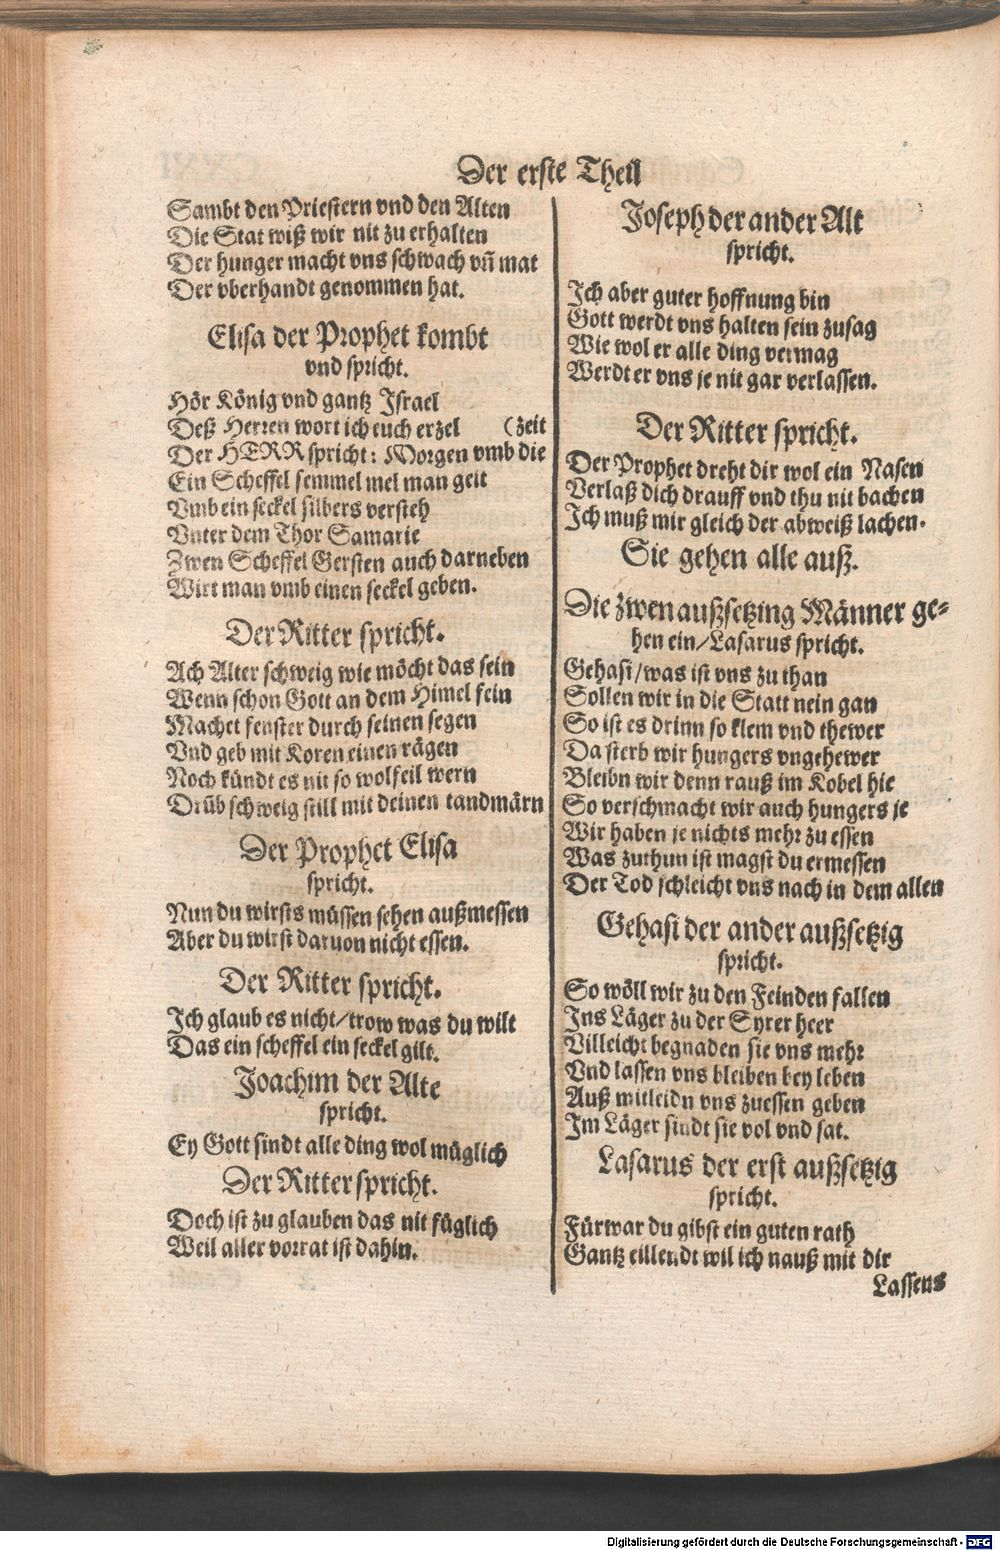 Der erste Theil
Sambt den Priestern vnd den Alten
Die Stat wiß wir nit zu erhalten
Der hunger macht vns schwach vñ mat
Der vberhandt genommen hat.
Elisa der Prophet kombt
vnd spricht.
Hör König vnd gantz Israel
Deß Herren wort ich euch erzel (zeit
Der HERR spricht: Morgen vmb die
Ein Scheffel semmel mel man geit
Vmb ein seckel silbers versteh
Vnter dem Thor Samarie
Zwen Scheffel Gersten auch darneben
Wirt man vmb einen seckel geben.
Der Ritter spricht.
Ach Alter schweig wie möcht das sein
Wenn schon Gott an dem Himel fein
Machet fenster durch seinen segen
Vnd geb mit Koren einen rägen
Noch kündt es nit so wolfeil wern
Drüb schweig still mit deinen tandmärn
Der Prophet Elisa
spricht.
Nun du wirsts müssen sehen außmessen
Aber du wirst daruon nicht essen.
Der Ritter spricht.
Ich glaub es nicht/trow was du wilt
Das ein scheffel ein seckel gilt.
Joachim der Alte
spricht.
Ey Gott sindt alle ding wol müglich
Der Ritter spricht.
Doch ist zu glauben das nit füglich
Weil aller vorrat ist dahin.
Joseph der ander Alt
spricht.
Ich aber guter hoffnung bin
Gott werdt vns halten sein zusag
Wie wol er alle ding vermag
Werdt er vns je nit gar verlassen.
Der Ritter spricht.
Der Prophet dreht dir wol ein Nasen
Verlaß dich drauff vnd thu nit bachen
Ich muß mir gleich der abweiß lachen.
Sie gehen alle auß.
Die zwen außsetzing Männer ge⸗
hen ein/Lasarus spricht.
Gehasi/was ist vns zu than
Sollen wir in die Statt nein gan
So ist es drinn so klem vnd thewer
Da sterb wir hungers vngehewer
Bleibn wir denn rauß im Kobel hie
So verschmacht wir auch hungers je
Wir haben je nichts mehr zu essen
Was zuthun ist magst du ermessen
Der Tod schleicht vns nach in dem allen
Gehasi der ander außsetzig
spricht.
So wöll wir zu den Feinden fallen
Ins Läger zu der Syrer heer
Villeicht begnaden sie vns mehr
Vnd lassen vns bleiben bey leben
Auß mitleidn vns zuessen geben
Im Läger sindt sie vol vnd sat.
Lasarus der erst außsetzig
spricht.
Fürwar du gibst ein guten rath
Gantz eillendt wil ich nauß mit dir
Lassens
Digitalisierung gefördert durch die Deutsche Forschungsgemeinschaft - DFG